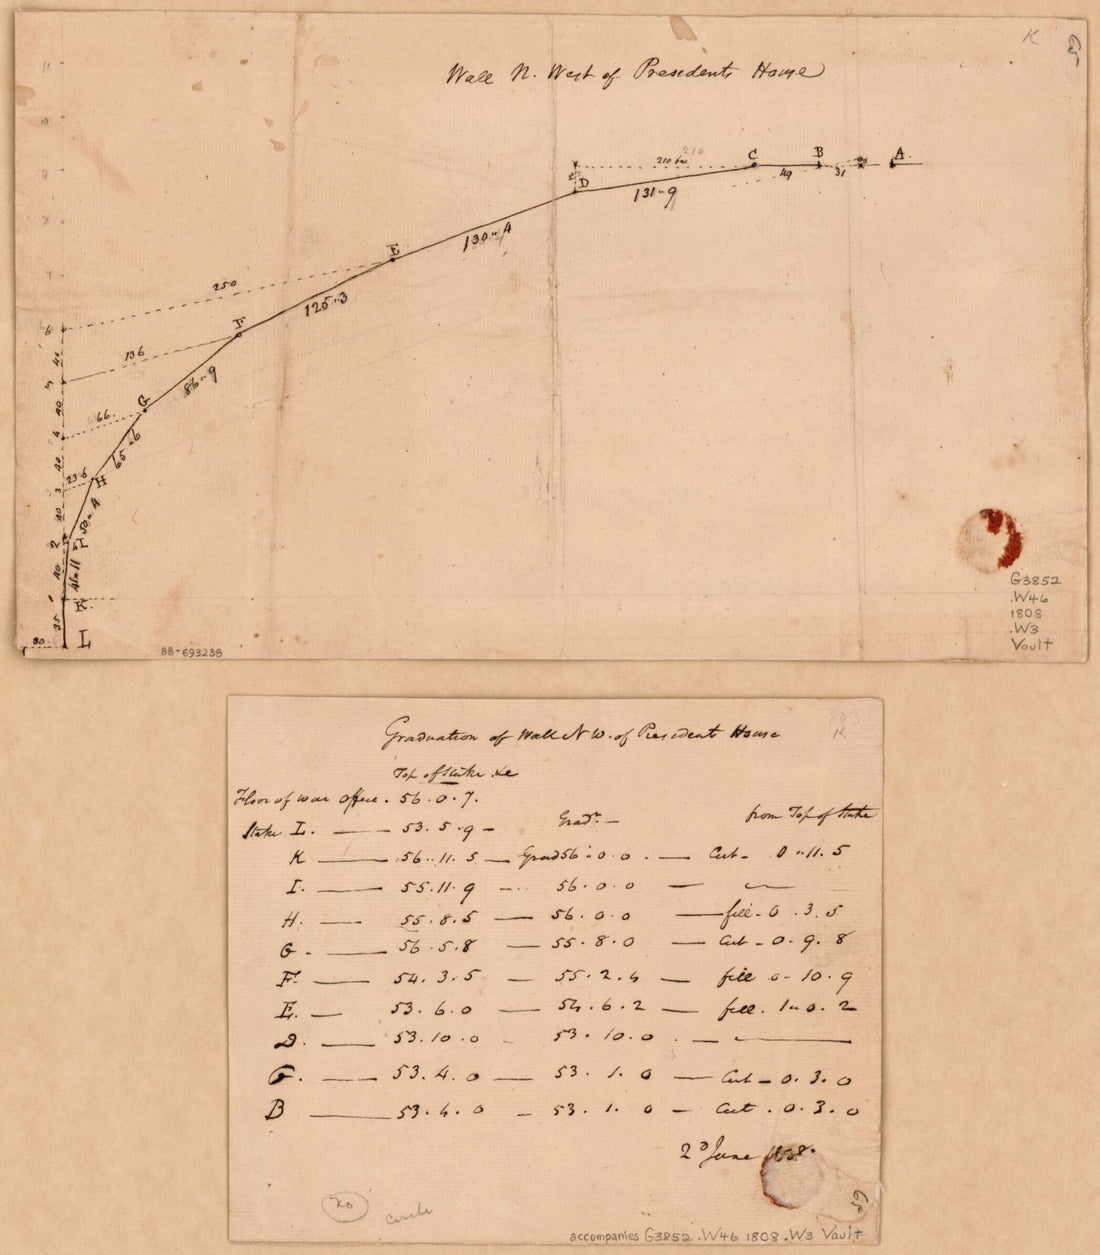 K
Wall N. West of Presidents House
11
10
9
7
210
210 feet
C B A.
49 31
D
131"9
130"4
E
250
125"3
F
6
136
40
86"9
5
G
40
66.
4
65"6
40
23.6
3
H
40
50"4
2
I
41"11
40
1
K.
35
L
30
88-693238
G3852
.W46
1808
.W3
Vault
Graduation of Wall N W. of President House
Top of Stake &c
Floor of war office. 56.0.7.
Stake L. — 53.5.9 — Grad.n — from Top of Stake
K — 56..11.5 — Grad 56.0.0. — Cut - 0"11.5
I. — 55.11.9 ... 56.0.0 — —
H. — 55.8.5 — 56.0.0 — fill - 0.3.5
G. — 56.5.8 — 55.8.0 — Cut - 0.9.8
F. — 54.3.5 — 55.2.4 — fill 0-10.9
E. — 53.6.0 — 54.6.2 — fill. 1"0.2
D. — 53.10.0 - 53.10.0. — —
C. — 53.4.0 — 53.1.0 — Cut - 0.3.0
B — 53.4.0 — 53.1.0 — Cut. 0.3.0
2d June 1808.
20 circle
accompanies G3852 .W46 1808 .W3 Vault